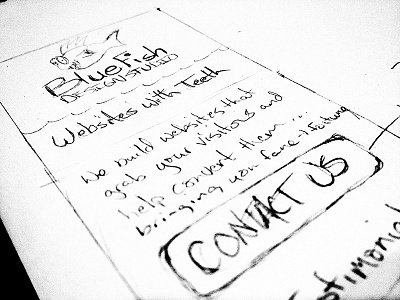 BlueFish
DESIGN STUDIO
Websites with Teeth
We build websites that
grab your visitors and
help convert them...
bringing you fame & fortune
CONTACT US
Testimonial